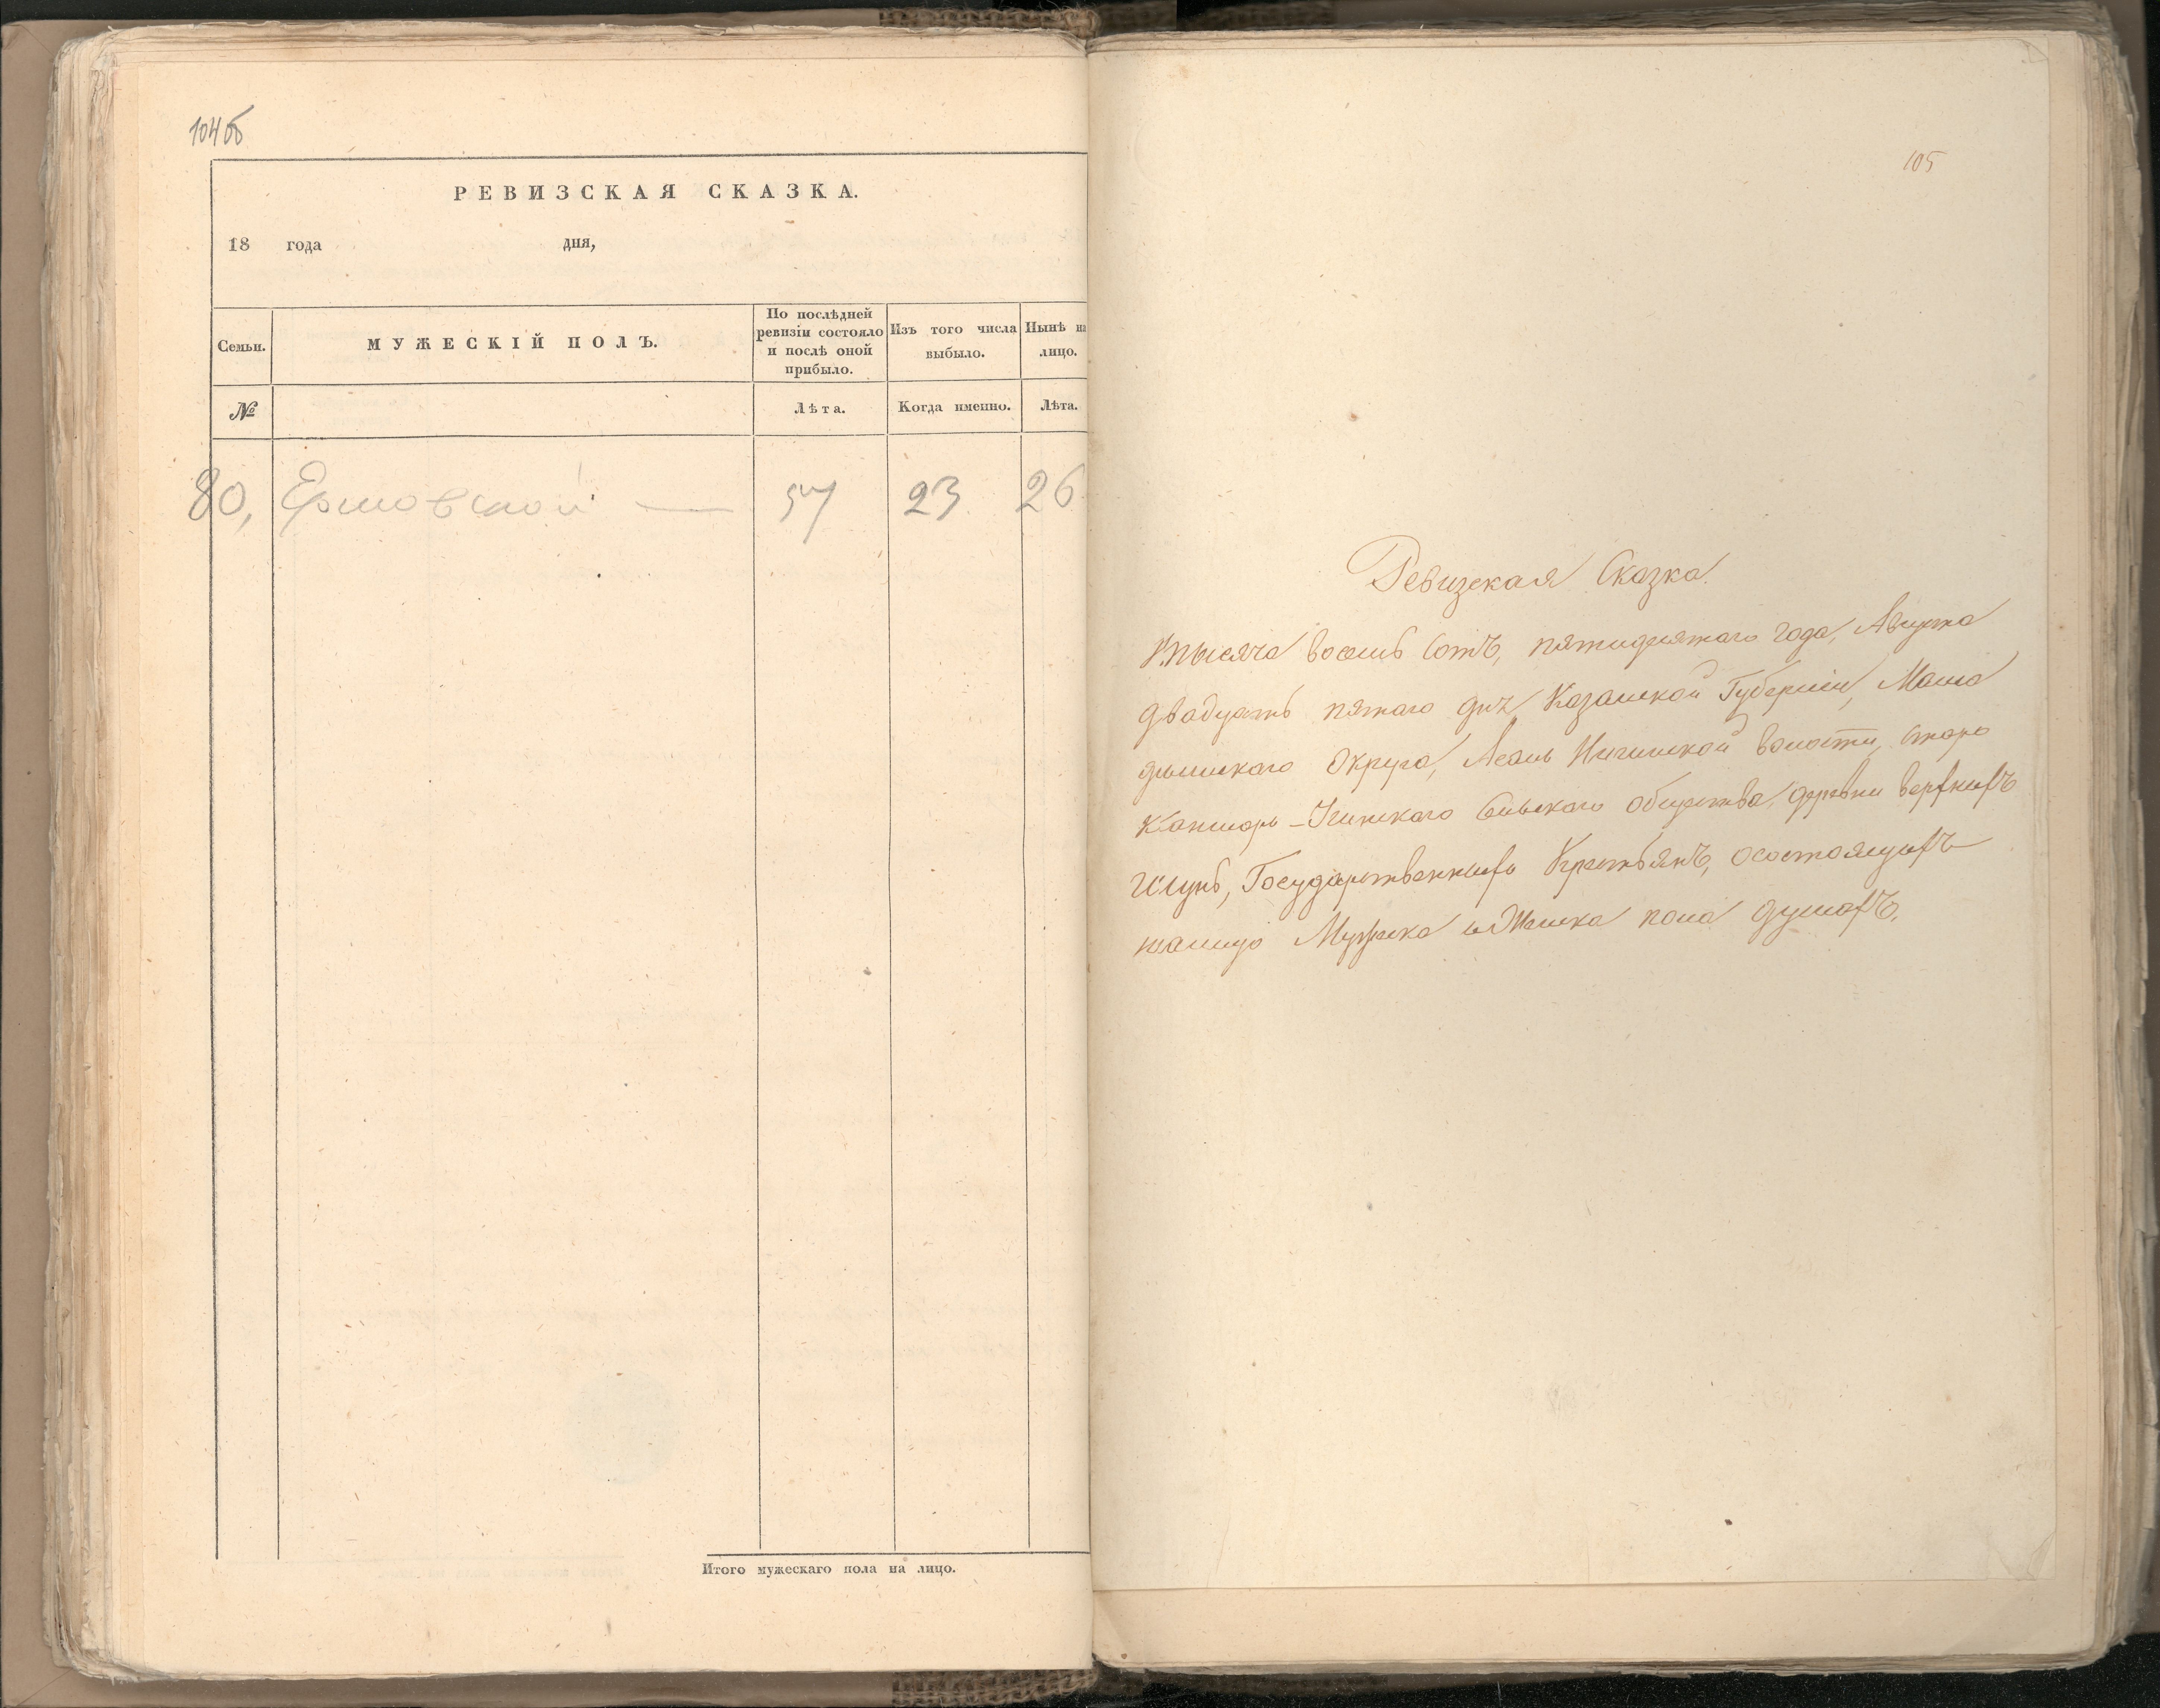 104об
РЕВИЗСКАЯ СКАЗКА.
18 года дня,
Семьи.
МУЖЕСКІЙ ПОЛЪ.
По послѣдней
ревизіи состояло
и послѣ оной
прибыло.
Изъ того числа
выбыло.
Нынѣ на
лицо.
№
Лѣта.
Когда именно.
Лѣта.
80, Ершовской — 57 23 26
Итого мужескаго пола на лицо.
105
Ревизская Сказка.
Тысяча восемь сотъ, пятидесятаго года, Августа
двадцать пятаго дня Казанской Губерніи, Мама
дышскаго Округа, волости, старо
Сельскаго общества, деревни верхнихъ
Государственныхъ Крестьянъ, осостоящихъ
налицо Мужска иЖенска пола душахъ.